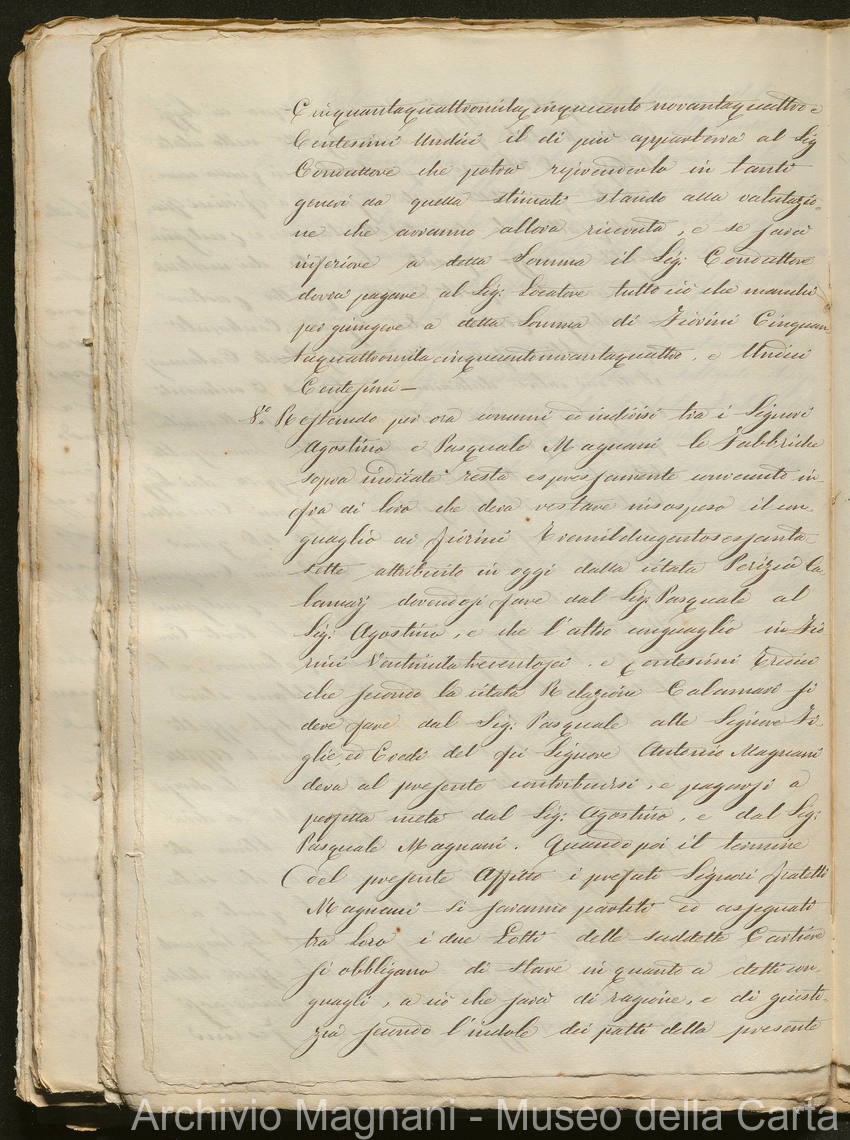 Cinquantaquattromilacinquecento novantaquattro e
Centesimi Undici il di più apparterrà al Sig
Conduttore che potrà rijvenderlo in tanti
generi da quella stimati stando alla valutazio-
ne che avranno allora ricevuta, e se sarà
inferiore a detta Somma il Sig: Conduttore
dovrà pagare al Sig: Locatore tutto ciò che manchi
per giungere a detta Somma di Fiorini Cinquan
taquattromila cinquecentonovantaquattro, e Undici
Centesimi —
8.° Restando per ora comuni ed indivisi tra i Signori
Agostino e Pasquale Magnani le Fabbriche
sopra indicate resta espressamente convenuto in
fra di loro che deva restare in sospeso il con-
guaglio ai fiorini Tremiladugentosessanta
sette attribuito in oggi dalla citata Perizia Ca
lamarj dovendosi fare dal Sig: Pasquale al
Sig: Agostino, e che l'altro conguaglio in Fio
rini Ventimila trecentosei. e Centesimi Tredici
che secondo la citata Relazione Calamari si
deve fare dal Sig: Pasquale alle Signore Fi-
glie, ed Eredi del fu Signore Antonio Magnani
deva al presente contribuirsi, e pagarsi a
perfetta metà dal Sig: Agostino, e dal Sig:
Pasquale Magnani. Quando poi il termine
del presente Affitto i prefati Signori fratelli
Magnani si saranno partiti ed assegnati
tra loro i due Lotti delle suddette Cartiere
si obbligano di stare in quanto a detti con
guagli, a ciò che sarà di ragione, e di giusti-
zia secondo l'indole dei patti della presente
Archivio Magnani - Museo della Carta